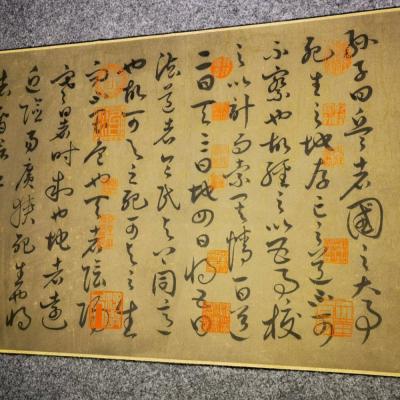 孫子曰兵者國之大事
死生之地存亡之道不可
不察也故經之以五事校
之以計而索其情一曰道
二曰天三曰地四曰將五曰
法道者令民与上同意
也故可与之死可与之生
而不畏危也天者陰陽
寒暑時制也地者遠
近險易廣狹死生也將